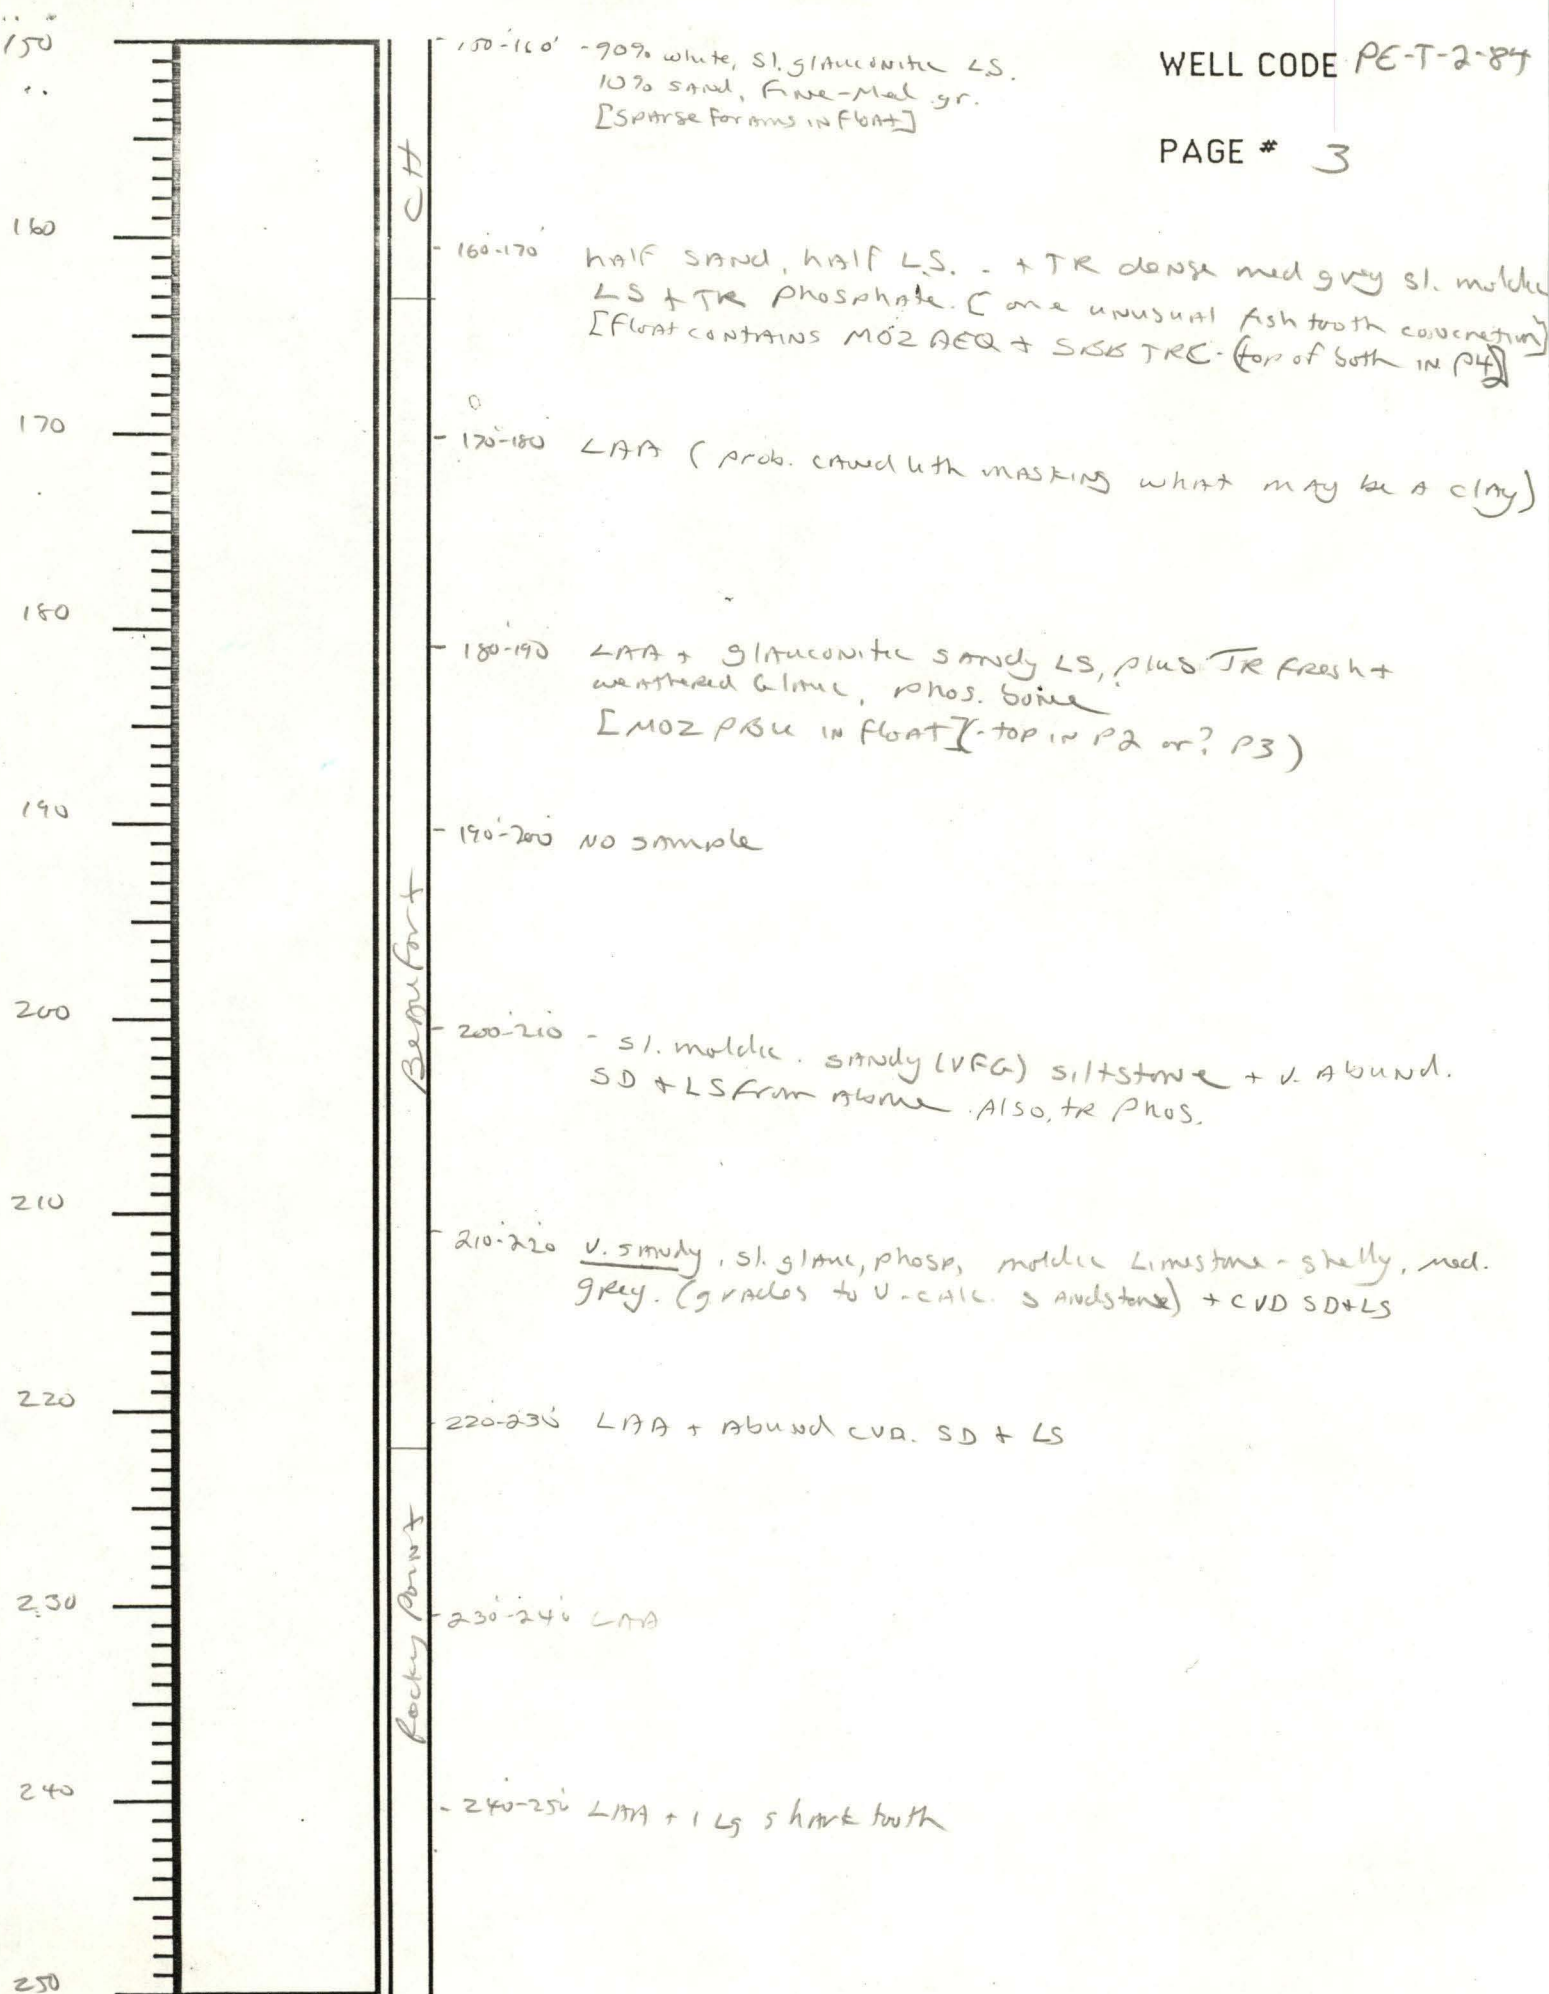 WELL CODE PE-T-2-84
PAGE # 3
150
150-160' - 90% white, Sl. glauconitic LS.
10% sand, Fine-Med gr.
[Sparse forams in float]
CH
160
160-170' half sand, half L.S. - + TR dense med grey sl. moldic
LS + TR phosphate. [one unusual fish tooth concretion]
[Float contains MOZ AEQ + SBB TRC - (top of both in P4)]
170
170-180 LAA (prob. caved lith masking what may be a clay)
180
180-190 LAA + glauconitic sandy LS, plus TR fresh +
weathered Glauc, phos. bone
[MOZ PBU in float] (-top in P2 or? P3)
190
190-200 NO sample
Beaufort
200
200-210 - sl. moldic. sandy (VFG) siltstone + v. Abund.
SD + LS from Above. Also, tr phos.
210
210-220 V. sandy, sl. glauc, phosp, moldic Limestone - shelly, med.
grey. (grades to v. calc. sandstone) + CVD SD+LS
220
220-230 LAA + Abund cvd. SD + LS
Rocky Point
230
230-240 LAA
240
240-250 LAA + 1 Lg shark tooth
250